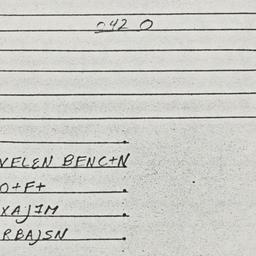 042 0
VELEN BENC+N
O+F+
XAJIM
RBAJSN